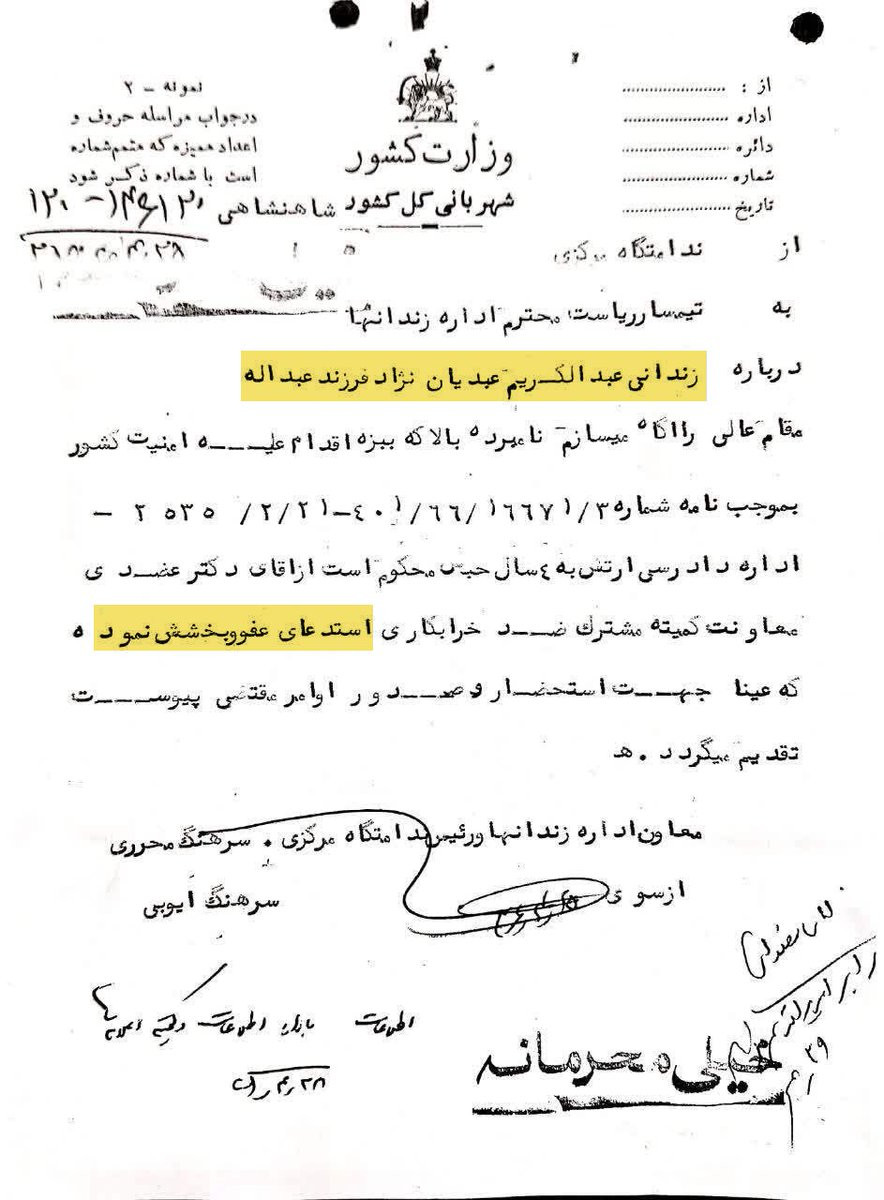 از :
اداره
دائره
شماره
تاریخ
وزارت کشور
شهربانی کل کشور
شاهنشاهی
نمونه - ۲
درجواب مراسله حروف و
اعداد ممیزه که متمم شماره
است با شماره ذکر شود
از ندامتگاه مرکزی
به تیمسار ریاست محترم اداره زندانها
درباره زندانی عبدالکریم عبدیان نژاد فرزند عبداله
مقام عالی را آگاه میسازم نامبرده بالا که ببزه اقدام علیه امنیت کشور
بموجب نامه شماره ۳/۱۶۶۷۱/۶۶/۴۰۱-۲/۲/۲۱/ ۲۵۳۵ -
اداره دادرسی ارتش به ٤ سال حبس محکوم است از اقای دکتر عضدی
معاونت کمیته مشترك ضد خرابکاری استدعای عفو و بخشش نموده
که عینا جهت استحضار و صدور اوامر مقتضی پیوست
تقدیم میگردد . هـ
معاون اداره زندانها و رئیس ندامتگاه مرکزی . سرهنگ محرری
ازسوی سرهنگ ایوبی
اطلاعات
خیلی محرمانه